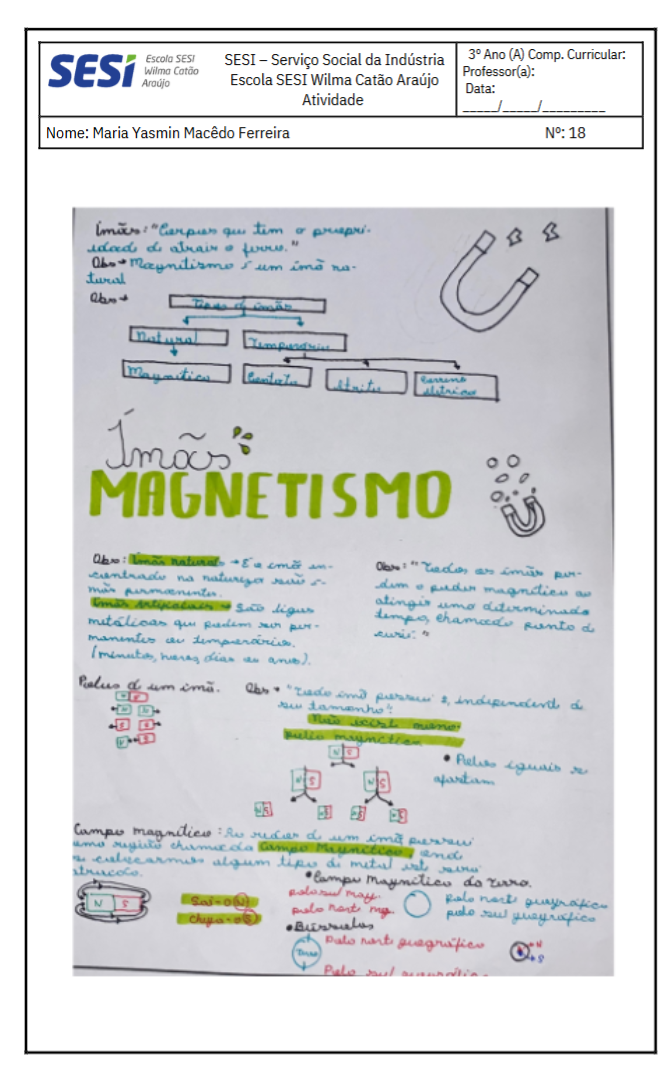 SESI
Escola SESI
Wilma Catão
Araújo
SESI – Serviço Social da Indústria
Escola SESI Wilma Catão Araújo
Atividade
3º Ano (A) Comp. Curricular:
Professor(a):
Data:
_____/_____/_________
Nome: Maria Yasmin Macêdo Ferreira
Nº: 18
Ímãs: "Corpos que tem a propri-
edade de atrair o ferro."
Obs → Magnitismo é um imã na-
tural
Obs →
Tipos de imãs
Natural
Temporário
Magnítico
Contato
Atrito
Corrente
elétrica
Ímãs
MAGNETISMO
Obs: Imãs naturais → É o imã en-
contrado na natureza serão í-
mãs permanentes.
Imãs Artificiais → São ligas
metálicas que podem ser per-
manentes ou temporários.
(minutos, horas, dias ou anos).
Obs: "Todos os imãs per-
dem o poder magnético ao
atingir uma determinada
tempo, chamado ponto de
curie."
Polos de um imã.
N S
N N
S S
N S
Obs → "Todo imã possui 2, independente de
seu tamanho".
Não existe mono
polio magnético
N S
N S
N S
N S
N S
N S
N S
• Polos iguais se
afastam
Campo magnético: Ao redor de um imã possui
uma região chamada Campo Magnético, onde
se colocarmos algum tipo de metal este será
atraido.
N S
Sai → o N
Chega → o S
• Campo magnético da Terra.
polo sul mag.
polo norte mg.
polo norte geográfico
polo sul geográfico
• Bússolas
Polo norte geográfico
Terra
Polo sul geográfico
N
S